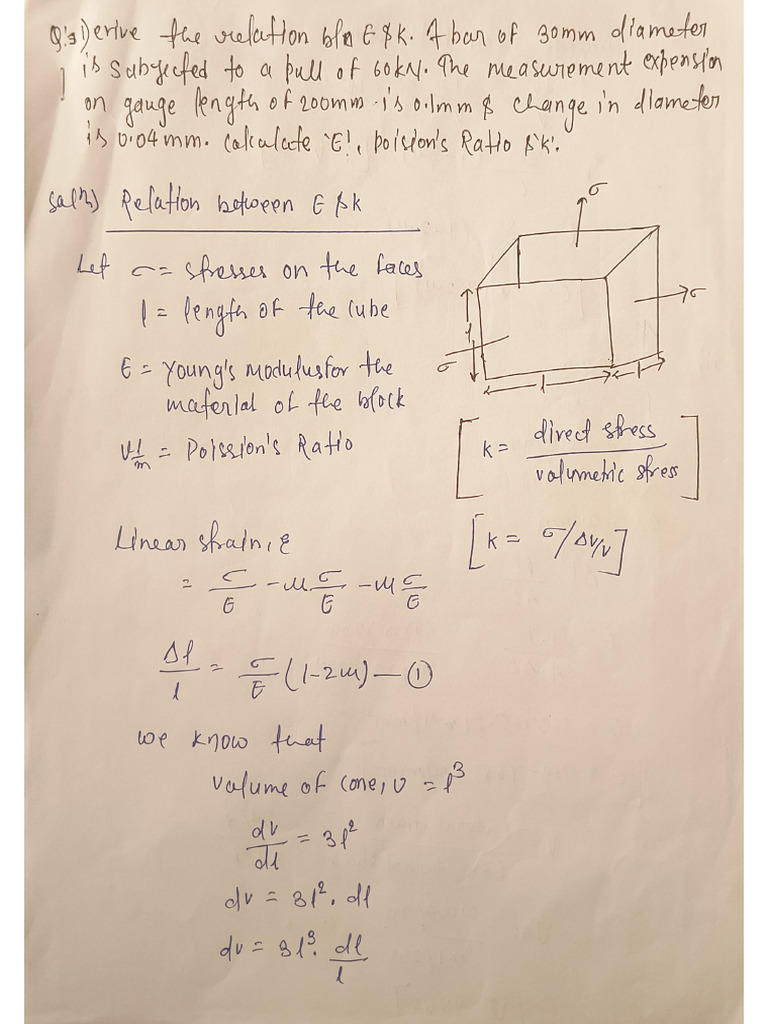 Q.3) Derive the relation b/n E & K. A bar of 30mm diameter
is subjected to a pull of 60kN. The measurement expension
on gauge length of 200mm is 0.1mm & change in diameter
is 0.04mm. Calculate 'E', poision's Ratio & 'K'.
Sol(n) Relation between E & K
Let σ = stresses on the faces
l = length of the cube
E = Young's Modulus for the
material of the block
μ 1/m = Poission's Ratio
σ
σ
σ
l
l
l
[K = direct stress / volumetric stress]
[K = σ/Δv/v]
Linear strain, ε
= σ/E - μ σ/E - μ σ/E
Δl/l = σ/E (1-2μ) — ①
we know that
volume of cone, v = l³
dv/dl = 3l²
dv = 3l². dl
dv = 3l³. dl/l